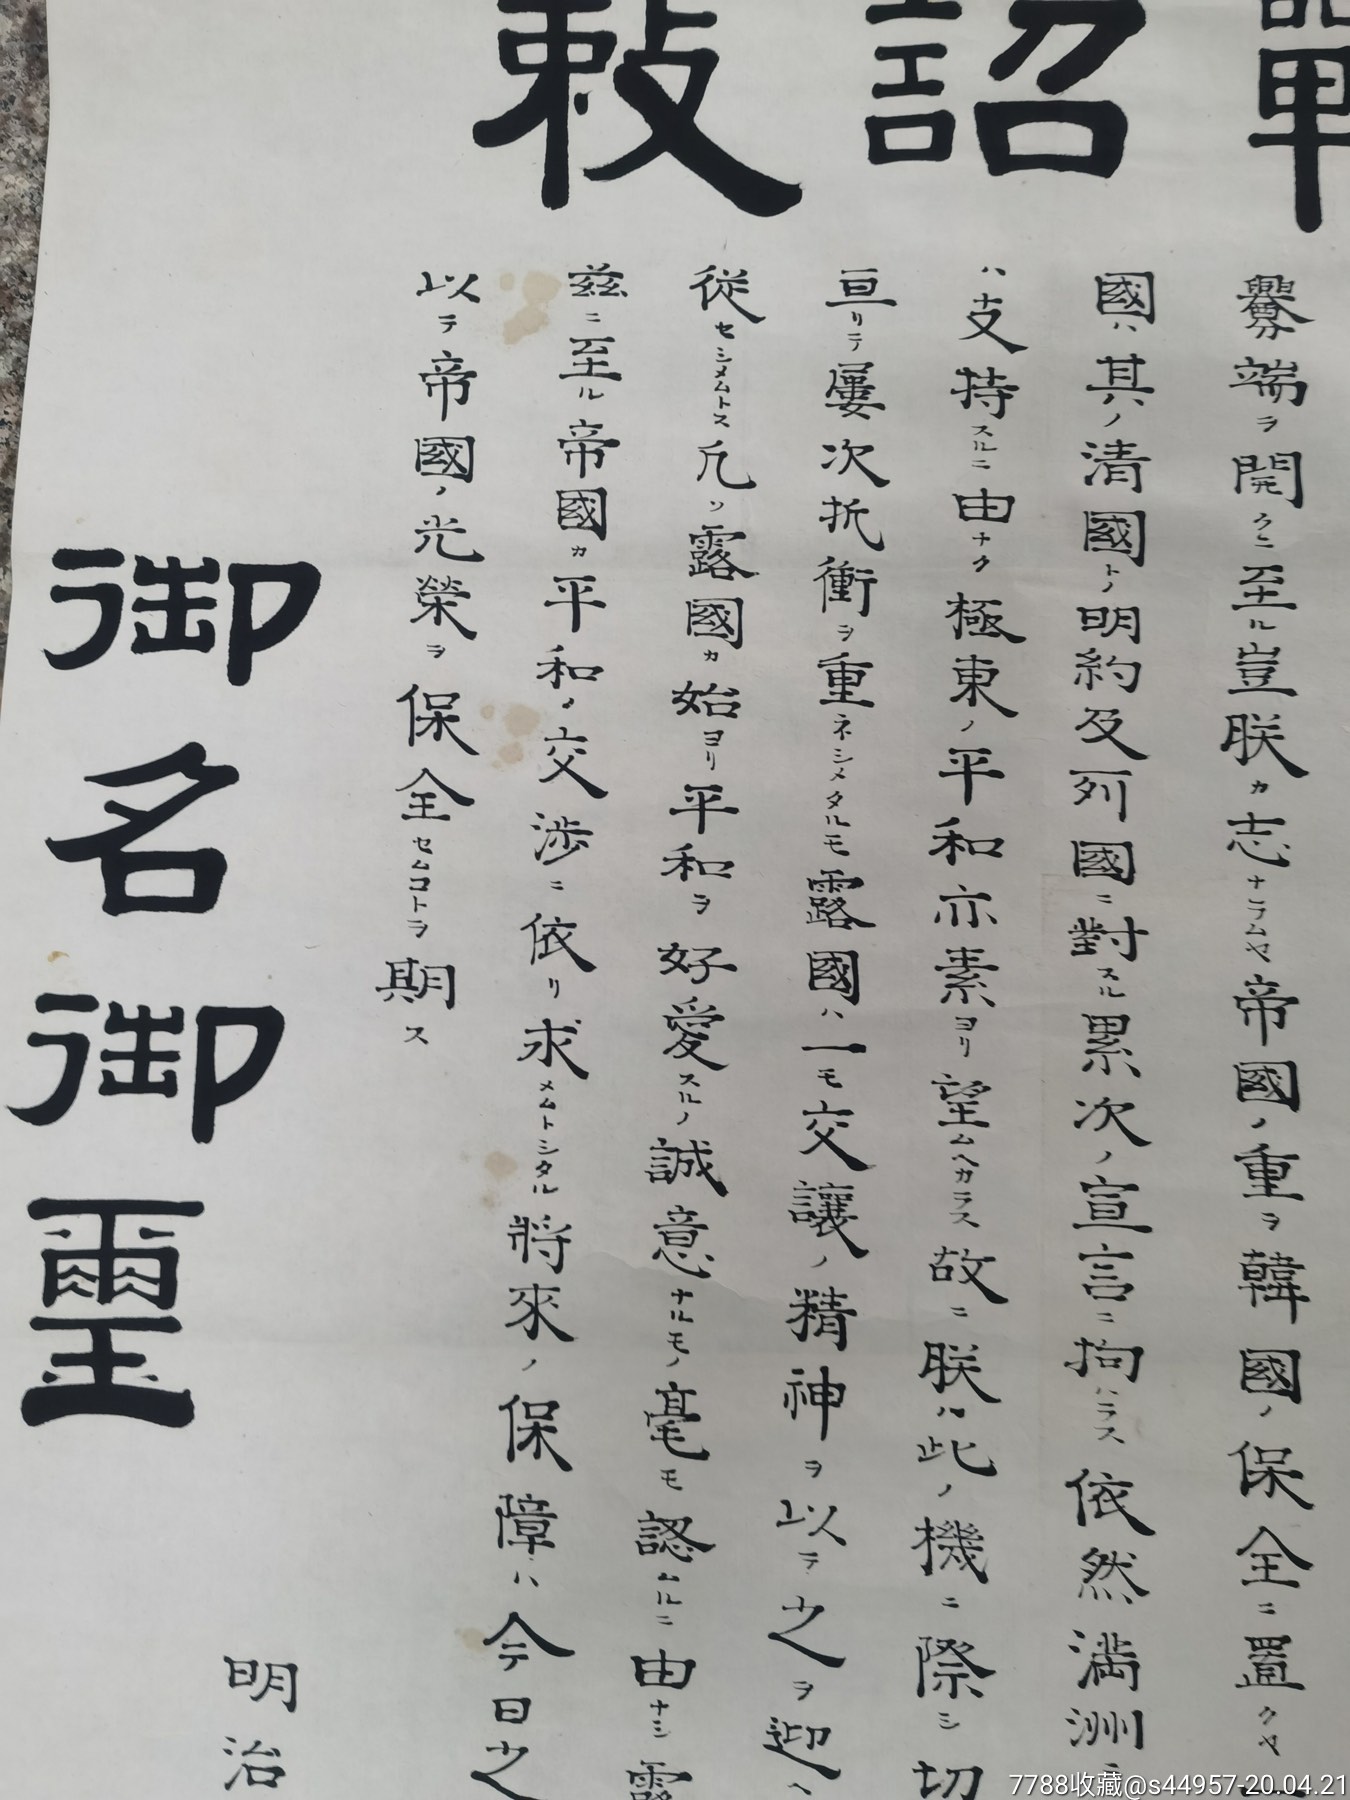 戰詔敕
釁端ヲ開クニ至ル豈朕カ志ナラムヤ帝國ノ重ヲ韓國ノ保全ニ置クヤ
國ハ其ノ清國トノ明約及列國ニ對スル累次ノ宣言ニ拘ハラス依然満洲ニ
ハ支持スルニ由ナク極東ノ平和亦素ヨリ望ムヘカラス故ニ朕ハ此ノ機ニ際シ切
亘リテ屢次折衝ヲ重ネシメタルモ露國ハ一モ交讓ノ精神ヲ以テ之ヲ迎ヘ
從セシメムトス凡ソ露國カ始ヨリ平和ヲ好愛スルノ誠意ナルモノ毫モ認ムルニ由ナシ露
茲ニ至ル帝國カ平和ノ交渉ニ依リ求メムトシタル將來ノ保障ハ今日之
以テ帝國ノ光榮ヲ保全セムコトヲ期ス
御名御璽
明治
7788收藏@s44957-20.04.21